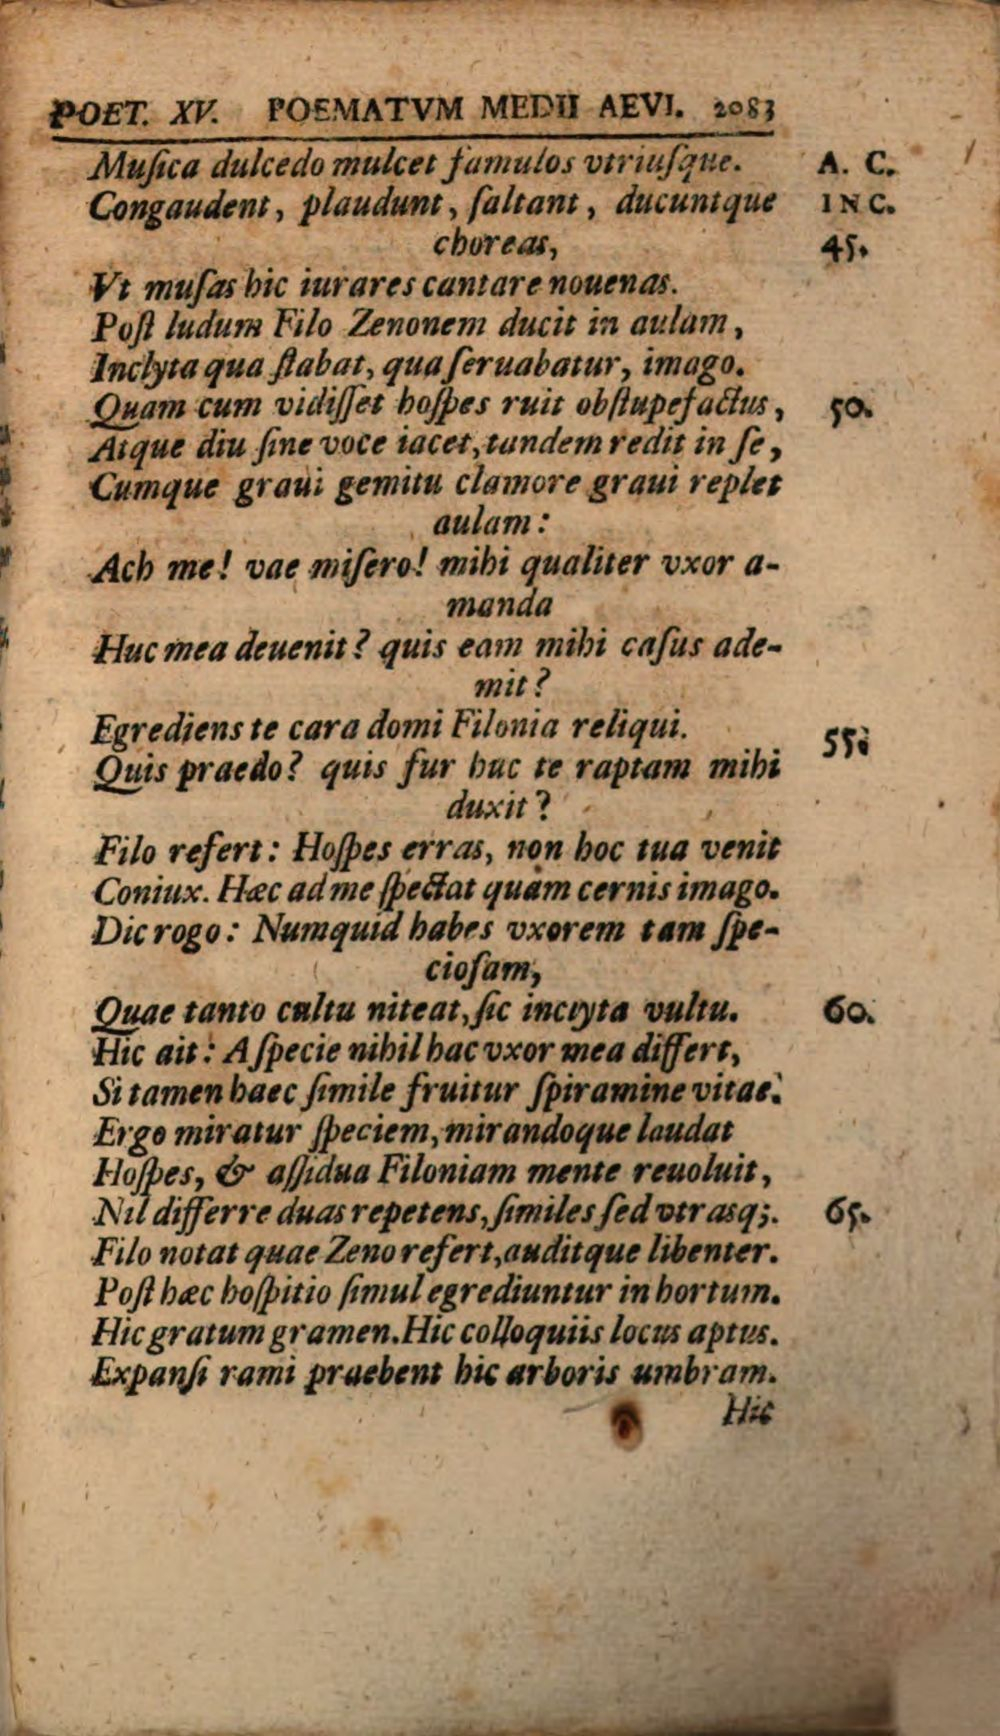 POET. XV. POEMATVM MEDII AEVI. 2083
Muſica dulcedo mulcet famulos vtriuſque. A. C.
Congaudent, plaudunt, ſaltant, ducuntque INC.
choreas, 45.
Vt muſas hic iurares cantare nouenas.
Poſt ludum Filo Zenonem ducit in aulam,
Inclyta qua ſtabat, qua ſeruabatur, imago.
Quam cum vidiſſet hoſpes ruit obſtupefactus, 50.
Atque diu ſine voce iacet, tandem redit in ſe,
Cumque graui gemitu clamore graui replet
aulam:
Ach me! vae miſero! mihi qualiter vxor a-
manda
Huc mea deuenit? quis eam mihi caſus ade-
mit?
Egrediens te cara domi Filonia reliqui.
Quis praedo? quis fur huc te raptam mihi 55.
duxit?
Filo refert: Hoſpes erras, non hoc tua venit
Coniux. Hæc ad me ſpectat quam cernis imago.
Dic rogo: Numquid habes vxorem tam ſpe-
cioſam,
Quae tanto cultu niteat, ſic inclyta vultu. 60.
Hic ait: A ſpecie nihil hac vxor mea differt,
Si tamen haec ſimile fruitur ſpiramine vitae.
Ergo miratur ſpeciem, mirandoque laudat
Hoſpes, & aſſidua Filoniam mente reuoluit,
Nil differre duas repetens, ſimiles ſed vtrasq;. 65.
Filo notat quae Zeno refert, auditque libenter.
Poſt hæc hoſpitio ſimul egrediuntur in hortum.
Hic gratum gramen. Hic colloquiis locus aptus.
Expanſi rami praebent hic arboris umbram.
Hic